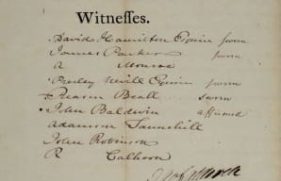 Witnesses.
David Hamilton Esquire sworn
James Parker sworn
A Monroe
Presley Nevill Esquire sworn
Pearson Beall sworn
John Baldwin affirmed
Adamson Tannehill
John Robinson
R Calhoon